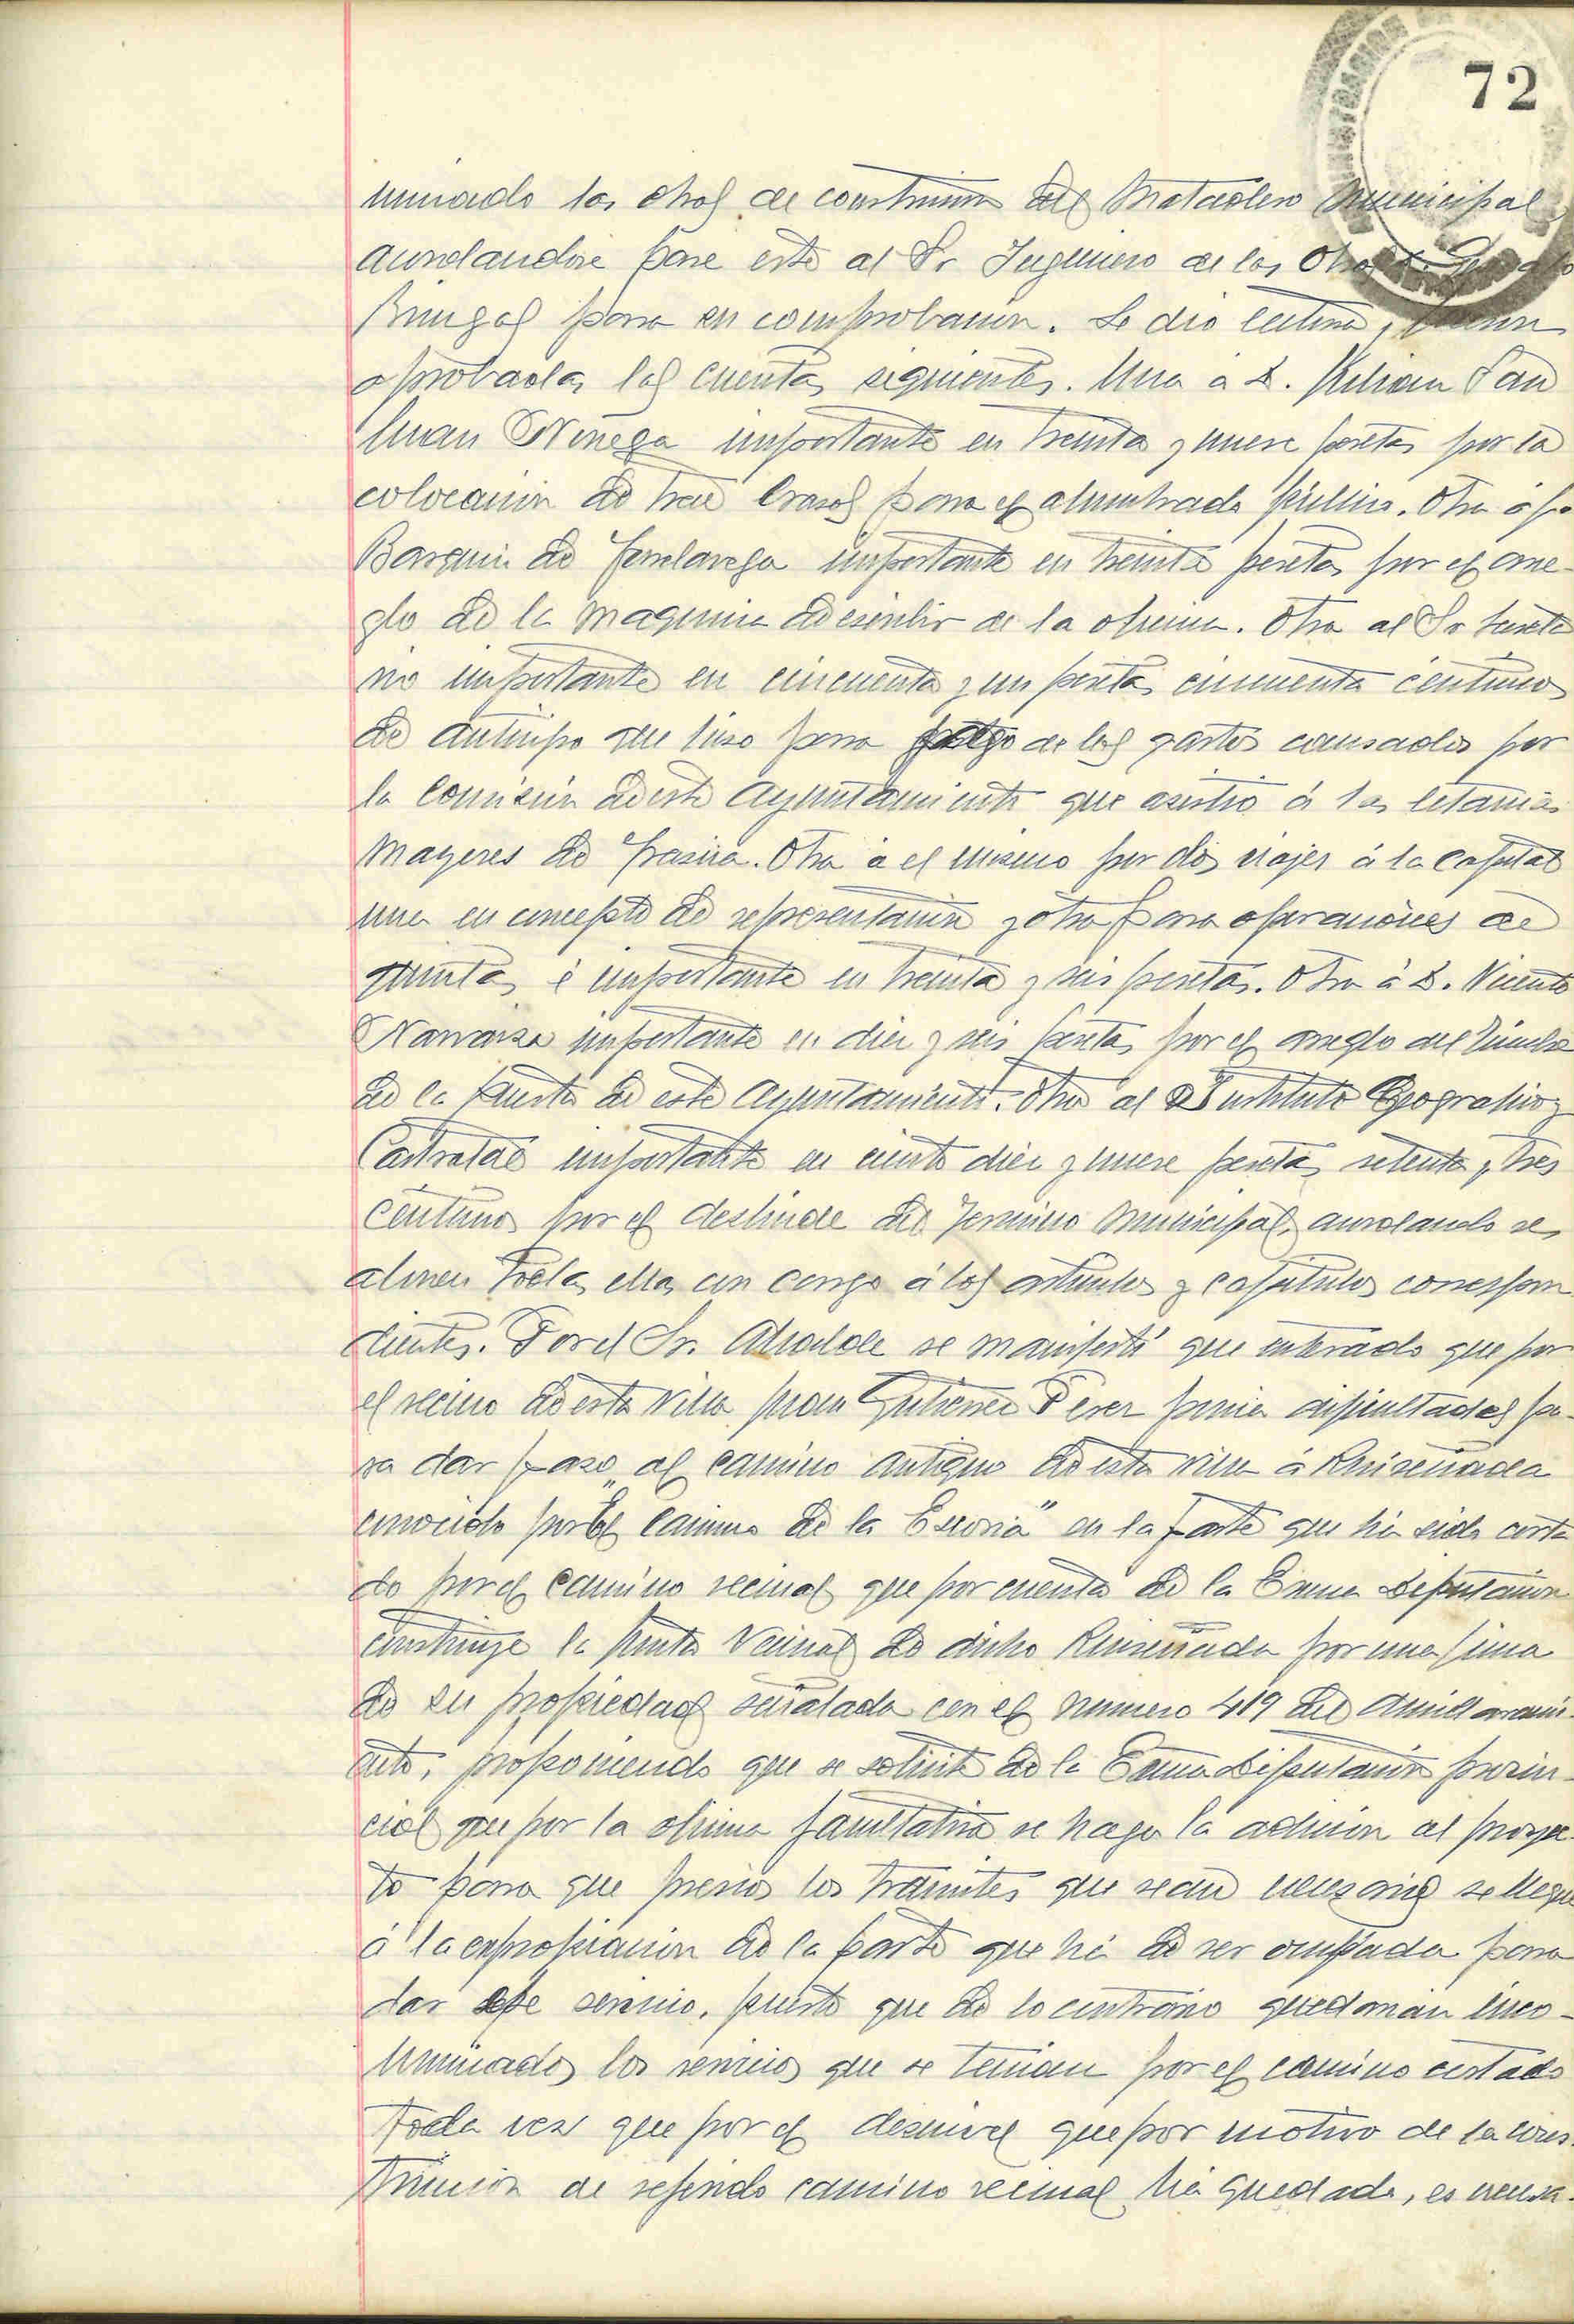 72
minado las obras de construccion del Matadero Municipal,
acordandose pase este al Sr Ingeniero de las Obras D.
Bringas para su comprobación. Se dio lectura y fueron
aprobadas las cuentas siguientes. Una a D. Julian San
Juan Noriega importante en treinta y nueve pesetas por la
colocación de trece brazos para el alumbrado público. Otra á
Barquin de Torrelavega importante en treinta pesetas por el arre-
glo de la maquina de escribir de la oficina. Otra al Sr Secreta
rio importante en cincuenta y un pesetas cincuenta céntimos
de anticipo que hizo para pago de los gastos causados por
la Comisión de este Ayuntamiento que asistió á las letanias
mayores de Frasina. Otra a el mismo por dos viajes á la capital
una en concepto de representación y otra para operaciones de
quintas é importante en treinta y seis pesetas. Otra á D. Vicente
Narvaiza importante en diez y seis pesetas por el arreglo del timbre
de la puerta de este Ayuntamiento. Otra al Instituto Geografico y
Castratal importante en ciento diez y nueve pesetas setenta y tres
céntimos por el deslinde del Termino Municipal, acordando se
abonen todas ellas con cargo á los artículos y capitulos correspon
dientes. Por el Sr. Alcalde se manifestó que enterado que por
el vecino de esta villa Juan Gutierrez Perez ponia dificultades pa-
ra dar paso al camino antiguo de esta villa á Ruiseñada
conocido por "El Camino de la Escoria" en la parte que há sido corta
do por el camino vecinal que por cuenta de la Excma Diputación
construye la Junta Vecinal de dicho Ruiseñada por una finca
de su propiedad señalada con el numero 419 del Amillarami-
ento, proponiendo que se solicite de la Excma Diputación provin-
cial que por la oficina facultativa se haga la adición al proyec-
to para que previos los tramites que sean necesarios se llegue
á la expropiación de la parte que há de ser ocupada para
dar ese servicio, puesto que de lo contrario quedarian inco-
municados los servicios que se tenian por el camino cortado
toda vez que por el desnivel que por motivo de la cons-
trucción de referido camino vecinal há quedado, es necesa-